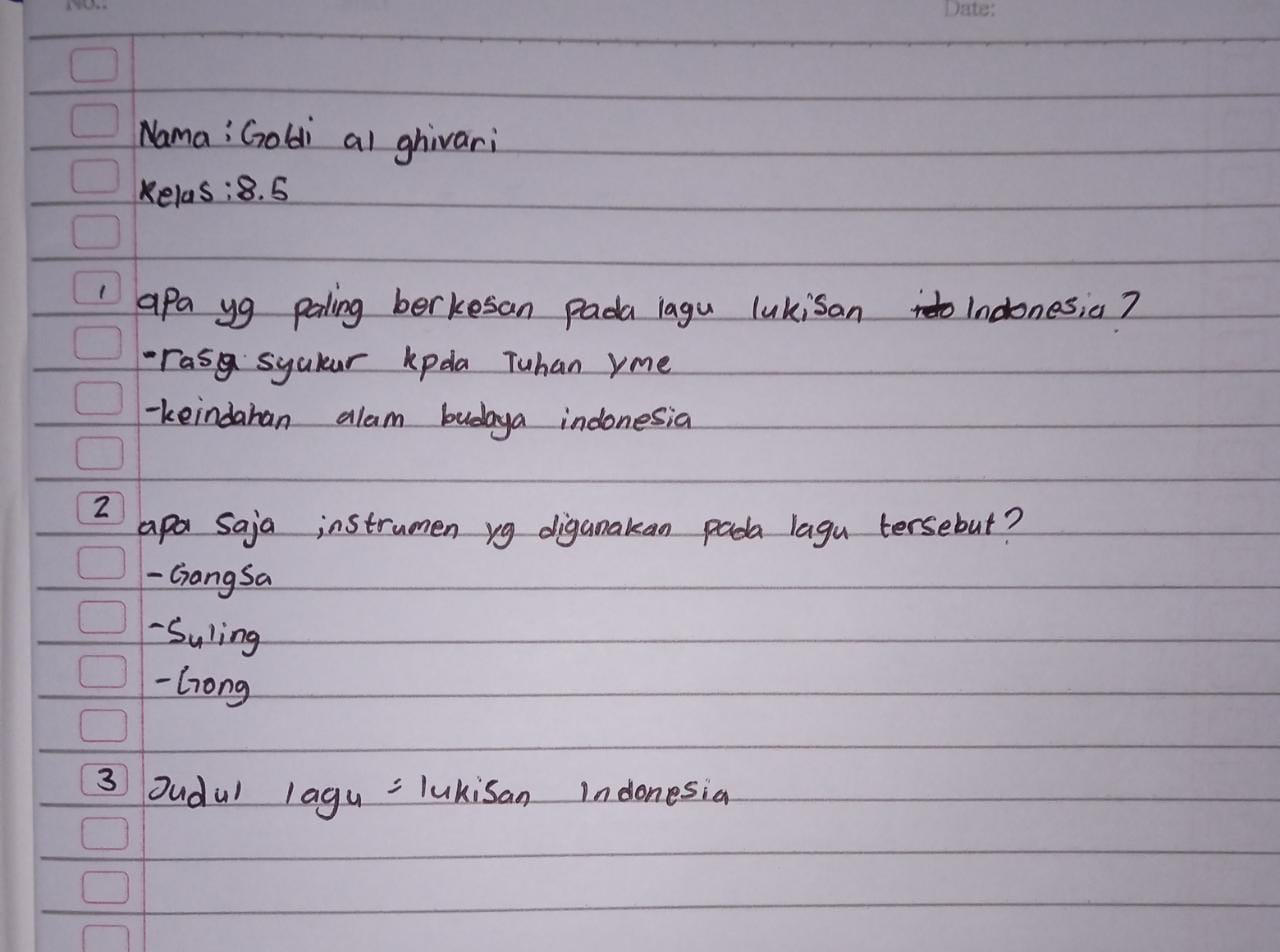 No.:
Date:
Nama : Goldi al ghivari
Kelas : 8.5
1 apa yg paling berkesan pada lagu lukisan Indonesia?
-rasa syukur kpda Tuhan yme
-keindahan alam budaya indonesia
2 apa saja instrumen yg digunakan pada lagu tersebut?
-Gangsa
-Suling
-Gong
3 Judul lagu = lukisan Indonesia